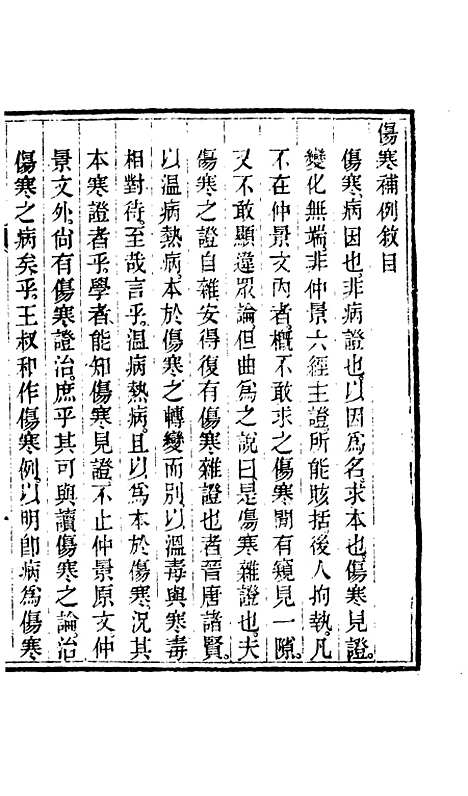 傷寒補例敘目
傷寒病因也。非病證也。以因爲名。求本也。傷寒見證。
變化無端。非仲景六經主證。所能賅括。後人拘執。凡
不在仲景文內者。槪不敢求之傷寒。閒有窺見一隙。
又不敢顯違眾論。但曲爲之說曰。是傷寒雜證也。夫
傷寒之證自雜。安得復有傷寒雜證也者。晉唐諸賢。
以溫病熱病。本於傷寒之轉變而別。以溫毒與寒毒
相對待。至哉言乎。溫病熱病。且以爲本於傷寒。況其
本寒證者乎。學者能知傷寒見證。不止仲景原文。仲
景文外。尙有傷寒證治。庶乎其可與讀傷寒之論。治
傷寒之病矣乎。王叔和作傷寒例。以明卽病爲傷寒